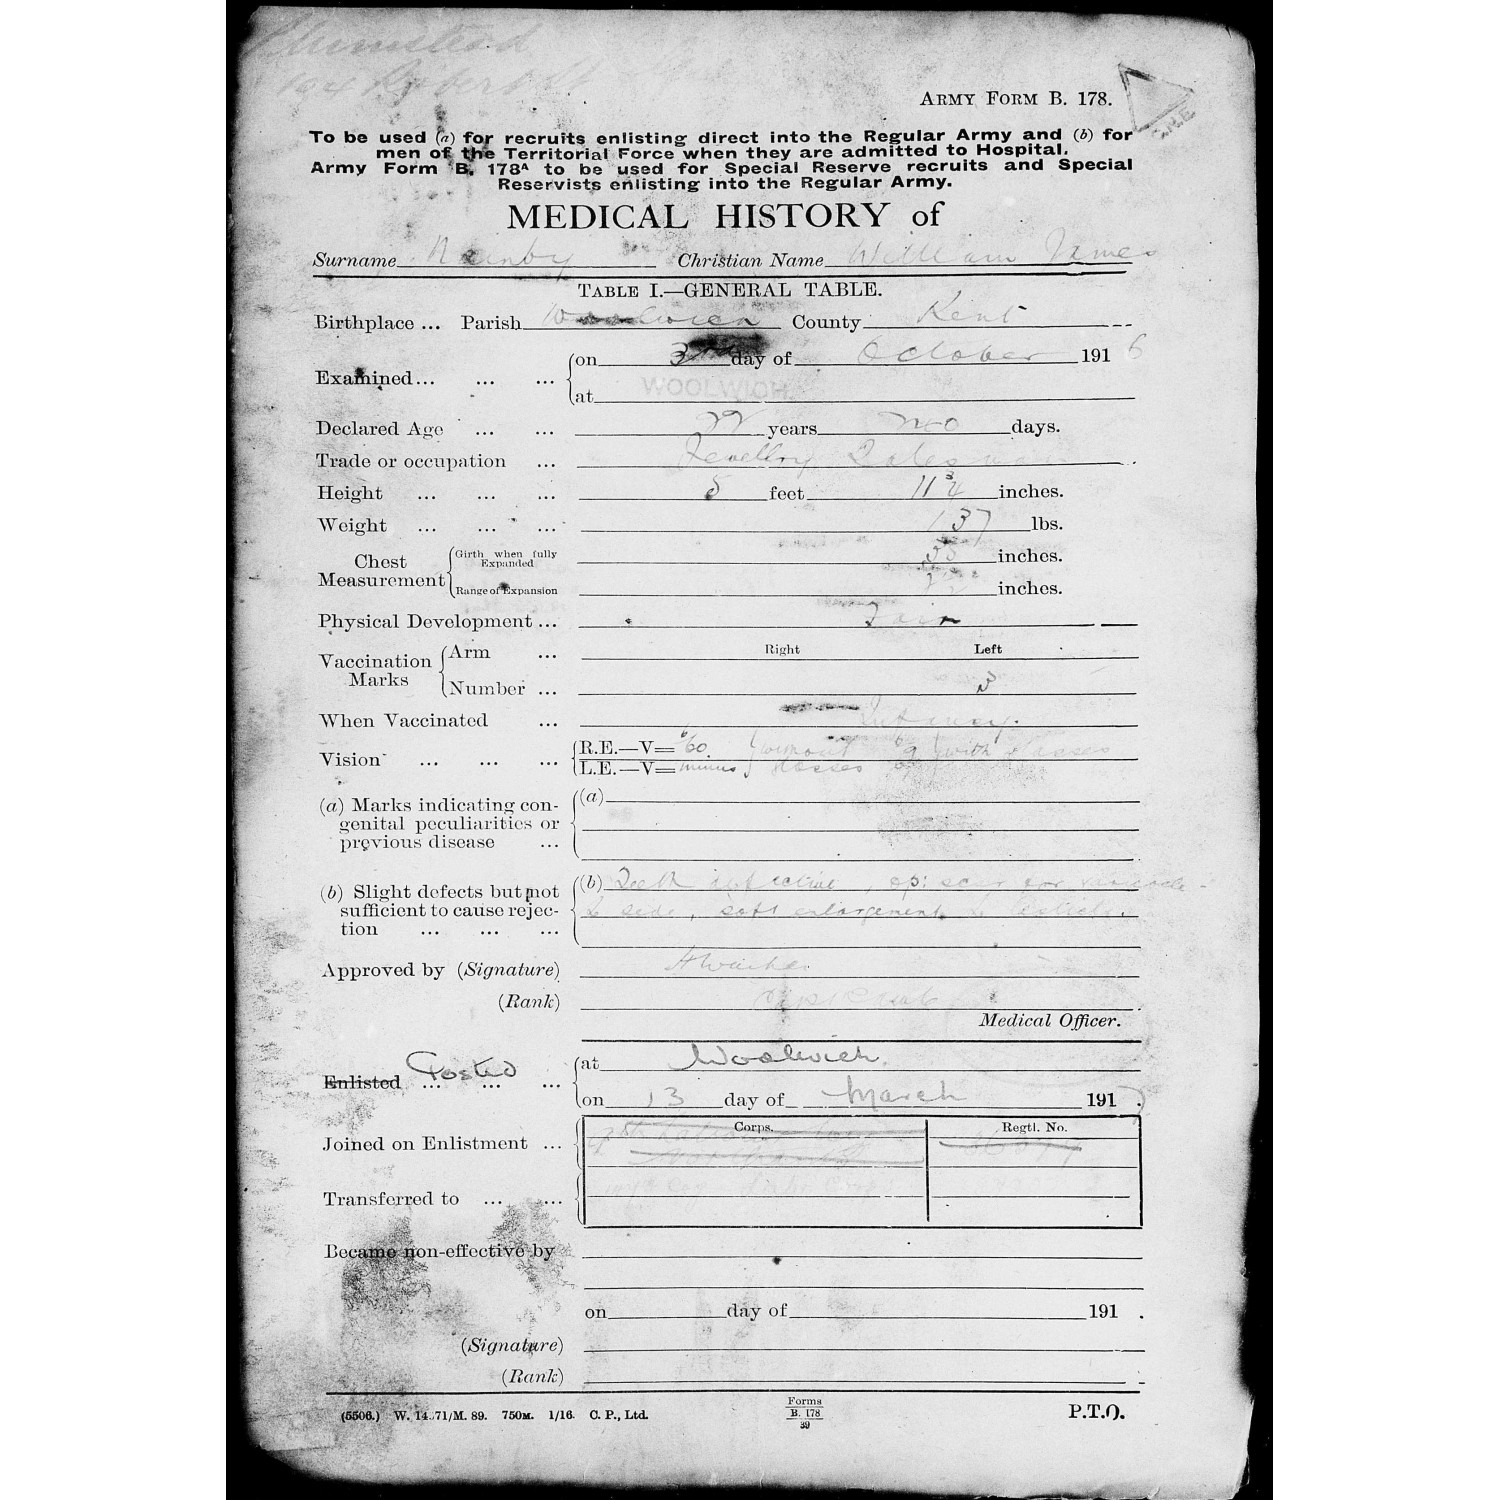 Plumstead
ARMY FORM B. 178.
To be used (a) for recruits enlisting direct into the Regular Army and (b) for
men of the Territorial Force when they are admitted to Hospital.
Army Form B. 178A to be used for Special Reserve recruits and Special
Reservists enlisting into the Regular Army.
MEDICAL HISTORY of
Surname Christian Name William James
TABLE I.—GENERAL TABLE.
Birthplace ... Parish Woolwich County Kent
Examined ... ... ... on 3rd day of October 1916
at WOOLWICH
Declared Age ... ... 22 years days.
Trade or occupation ... Jewellery Salesman
Height ... ... ... 5 feet 11 3/4 inches.
Weight ... ... ... 137 lbs.
Chest Measurement Girth when fully Expanded 35 inches.
Range of Expansion inches.
Physical Development ... Fair
Vaccination Marks Arm ... Right Left
Number ... 3
When Vaccinated ... Infancy.
Vision ... ... ... R.E.—V= 6/60 without 6/9 with glasses
L.E.—V= minus glasses
(a) Marks indicating con-
genital peculiarities or
previous disease ...
(a)
(b) Slight defects but not
sufficient to cause rejec-
tion ... ... ...
(b) Teeth defective, op: scar for varicocele
L side, soft enlargement L testicle.
Approved by (Signature)
(Rank)
Medical Officer.
Enlisted Posted ... ... ... at Woolwich.
on 13 day of March 1917.
Corps. Regtl. No.
Joined on Enlistment ...
Transferred to ... ...
Became non-effective by
on day of 191 .
(Signature)
(Rank)
(5506.) W. 14.71/M. 89. 750M. 1/16. C. P., Ltd. Forms
B. 178
39
P.T.O.